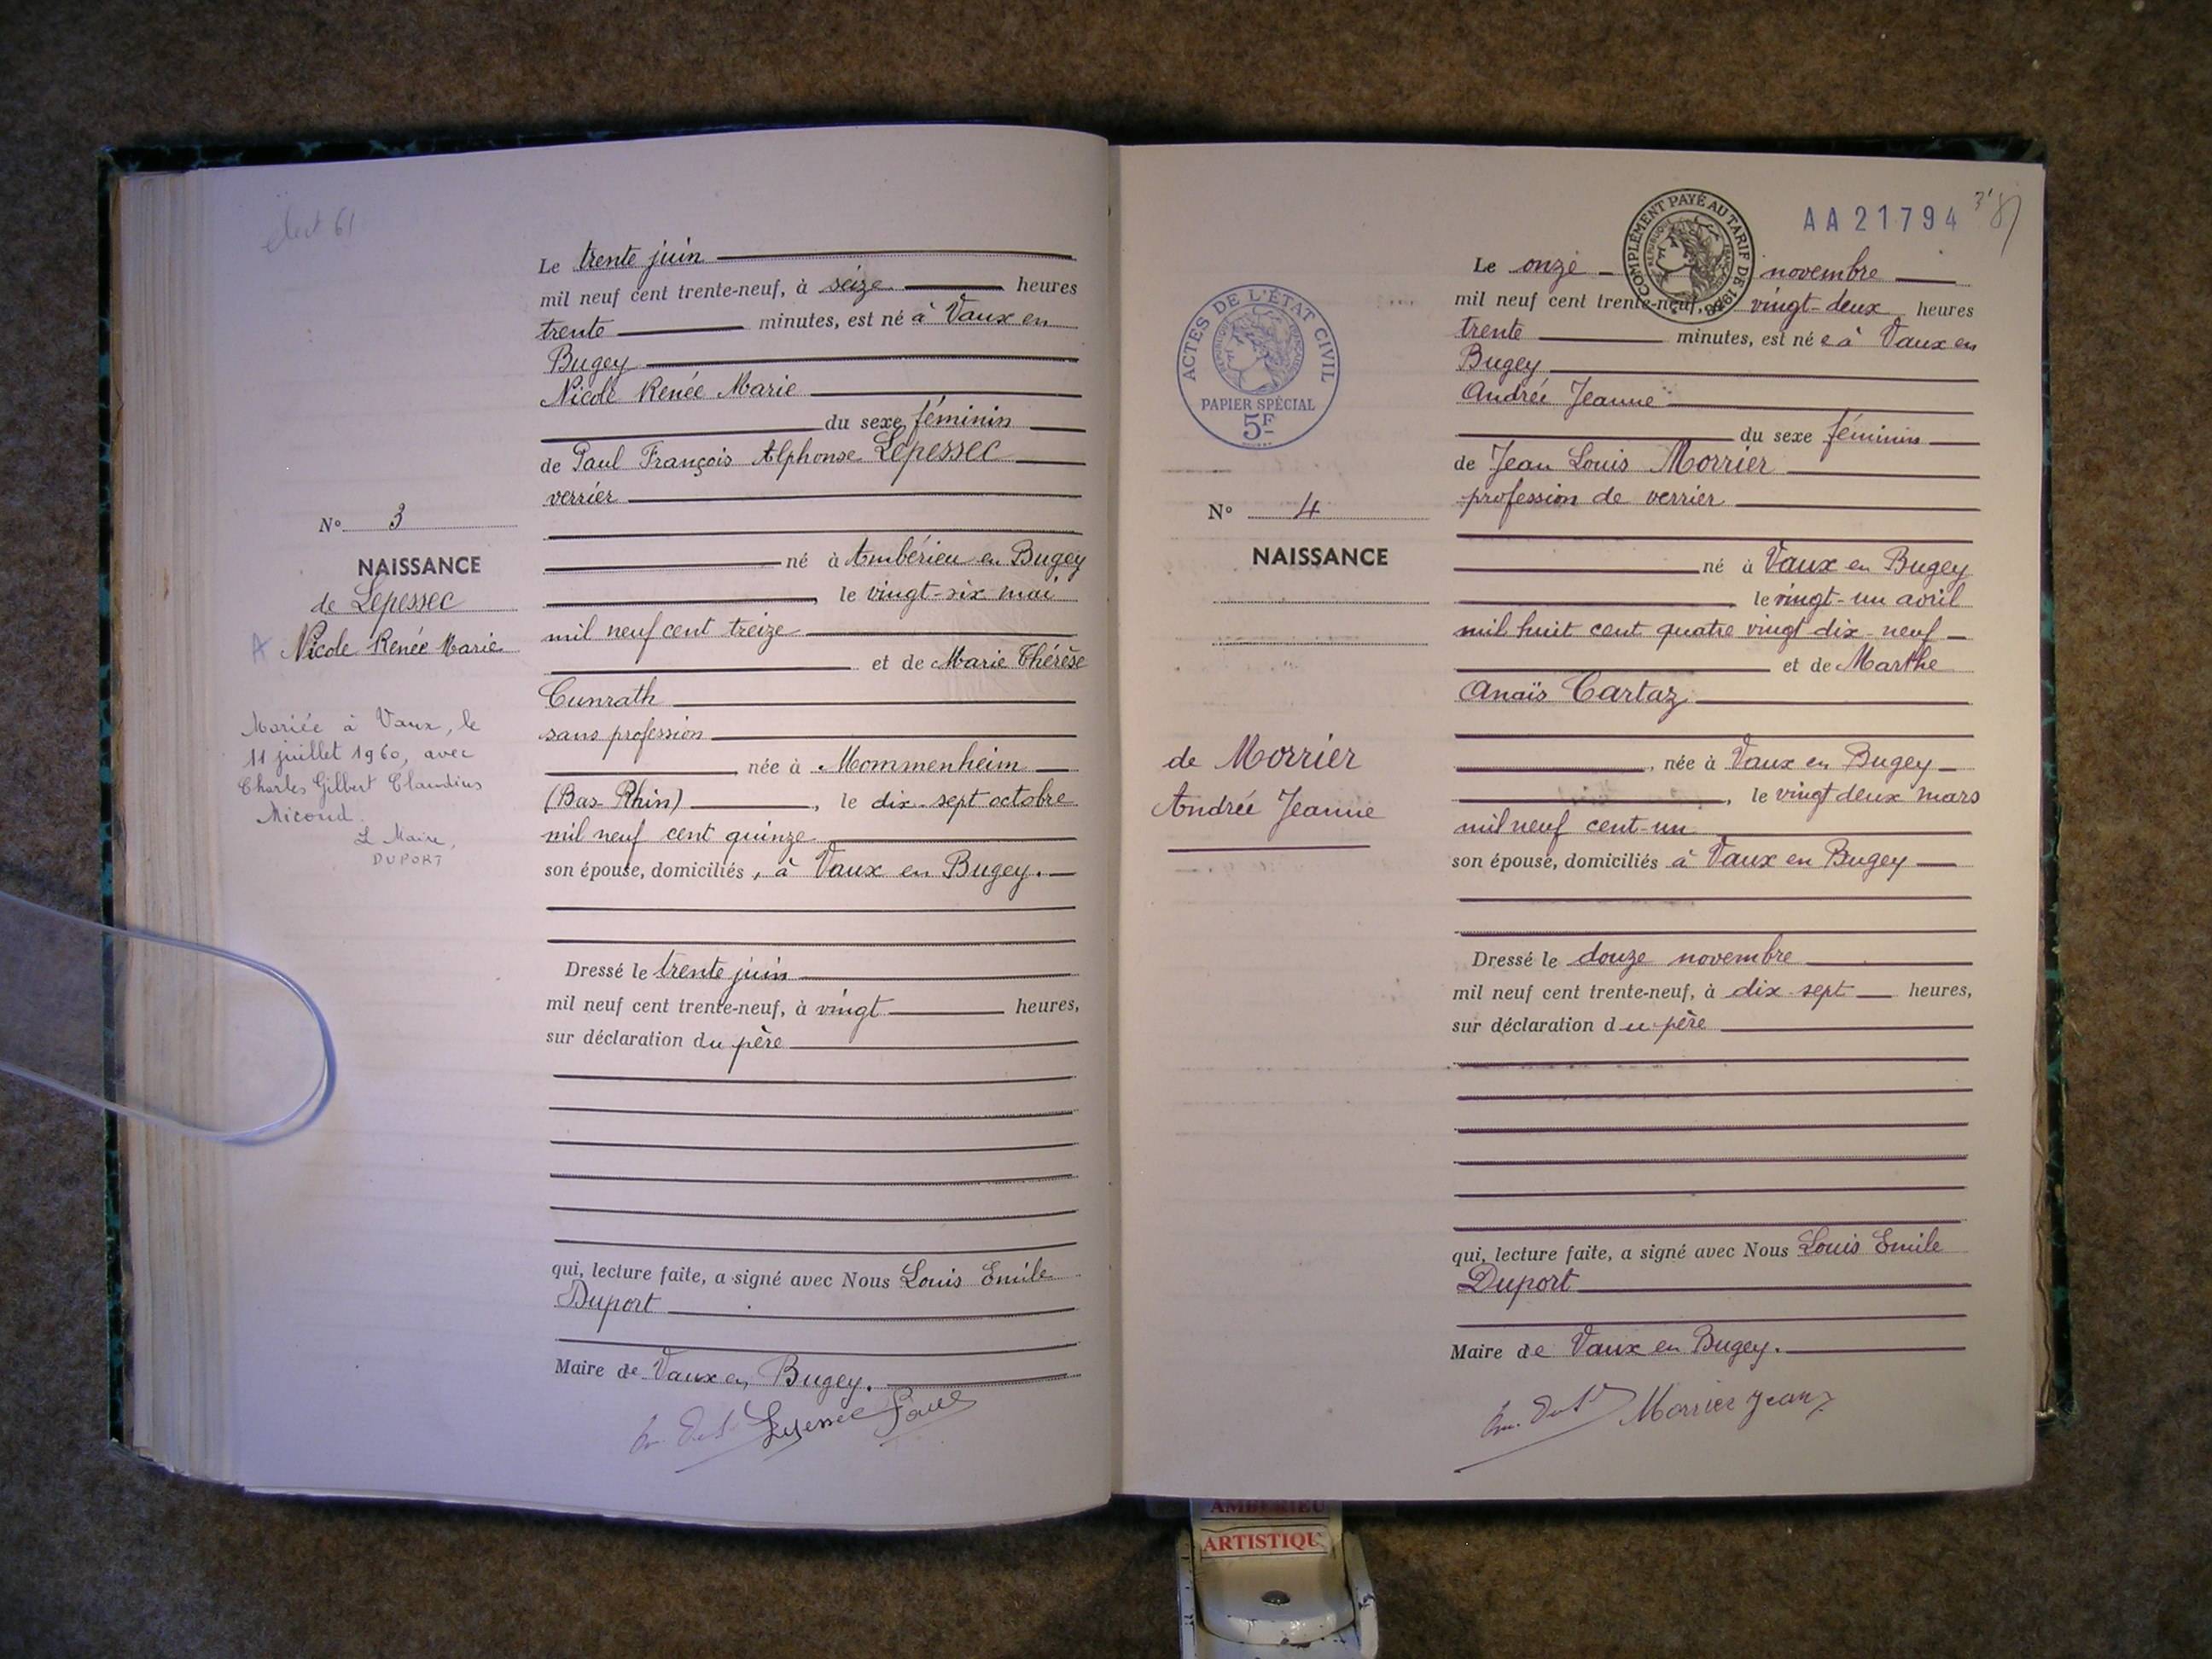 élect 61
Le trente juin
mil neuf cent trente-neuf, à seize heures
trente minutes, est né à Vaux en
Bugey
Nicole Renée Marie
du sexe féminin
de Paul François Alphonse Lepessec
verrier
né à Ambérieu en Bugey
, le vingt-six mai
mil neuf cent treize
et de Marie Thérèse
Cunrath
sans profession
, née à Mommenheim
(Bas-Rhin), le dix-sept octobre
mil neuf cent quinze
son épouse, domiciliés, à Vaux en Bugey.
Dressé le trente juin
mil neuf cent trente-neuf, à vingt heures,
sur déclaration du père
qui, lecture faite, a signé avec Nous Louis Emile
Duport
Maire de Vaux en Bugey.
Lepessec Paul
N° 3
NAISSANCE
de Lepessec
Nicole Renée Marie
Mariée à Vaux, le
11 juillet 1960, avec
Charles Gilbert Claudius
Micoud.
Le Maire,
DUPORT
AA 21794
COMPLÉMENT PAYÉ AU TARIF DE
ACTES DE L'ÉTAT CIVIL
RÉPUBLIQUE FRANÇAISE
PAPIER SPÉCIAL
5F
Le onze novembre
mil neuf cent trente-neuf, à vingt-deux heures
trente minutes, est née à Vaux en
Bugey
Andrée Jeanne
du sexe féminin
de Jean Louis Morrier
profession de verrier
né à Vaux en Bugey
le vingt-un avril
mil huit cent quatre vingt dix-neuf
et de Marthe
Anaïs Cartaz
, née à Vaux en Bugey
, le vingt deux mars
mil neuf cent-un
son épouse, domiciliés à Vaux en Bugey
Dressé le douze novembre
mil neuf cent trente-neuf, à dix-sept heures,
sur déclaration du père
qui, lecture faite, a signé avec Nous Louis Emile
Duport
Maire de Vaux en Bugey.
Morrier Jean
N° 4
NAISSANCE
de Morrier
Andrée Jeanne
AMBERIEU
ARTISTIQU